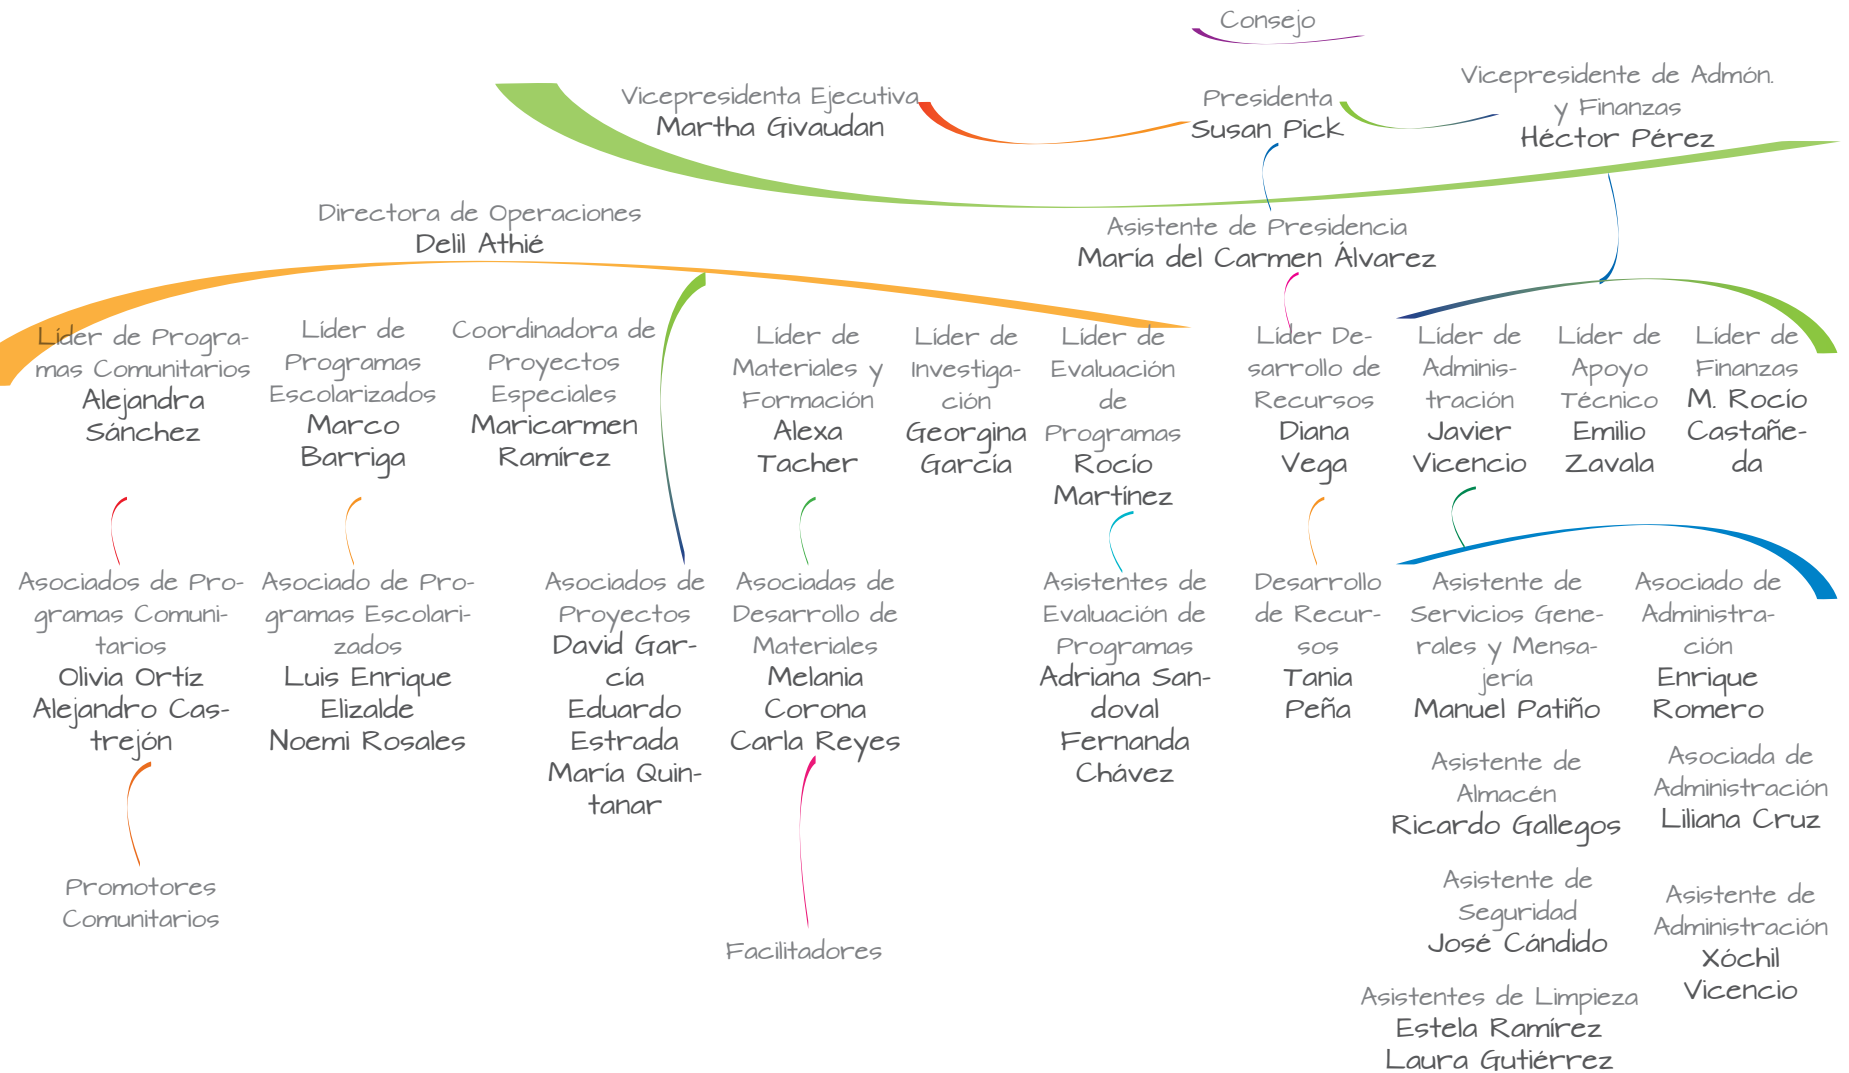 Consejo
Vicepresidenta Ejecutiva
Martha Givaudan
Presidenta
Susan Pick
Vicepresidente de Admón.
y Finanzas
Héctor Pérez
Directora de Operaciones
Delil Athié
Asistente de Presidencia
María del Carmen Álvarez
Líder de Progra-
mas Comunitarios
Alejandra
Sánchez
Líder de
Programas
Escolarizados
Marco
Barriga
Coordinadora de
Proyectos
Especiales
Maricarmen
Ramírez
Líder de
Materiales y
Formación
Alexa
Tacher
Líder de
Investiga-
ción
Georgina
García
Líder de
Evaluación
de
Programas
Rocío
Martínez
Líder De-
sarrollo de
Recursos
Diana
Vega
Líder de
Adminis-
tración
Javier
Vicencio
Líder de
Apoyo
Técnico
Emilio
Zavala
Líder de
Finanzas
M. Rocío
Castañe-
da
Asociados de Pro-
gramas Comuni-
tarios
Olivia Ortíz
Alejandro Cas-
trejón
Asociado de Pro-
gramas Escolari-
zados
Luis Enrique
Elizalde
Noemi Rosales
Asociados de
Proyectos
David Gar-
cía
Eduardo
Estrada
María Quin-
tanar
Asociadas de
Desarrollo de
Materiales
Melania
Corona
Carla Reyes
Asistentes de
Evaluación de
Programas
Adriana San-
doval
Fernanda
Chávez
Desarrollo
de Recur-
sos
Tania
Peña
Asistente de
Servicios Gene-
rales y Mensa-
jería
Manuel Patiño
Asociado de
Administra-
ción
Enrique
Romero
Asistente de
Almacén
Ricardo Gallegos
Asociada de
Administración
Liliana Cruz
Promotores
Comunitarios
Facilitadores
Asistente de
Seguridad
José Cándido
Asistente de
Administración
Xóchil
Vicencio
Asistentes de Limpieza
Estela Ramírez
Laura Gutiérrez